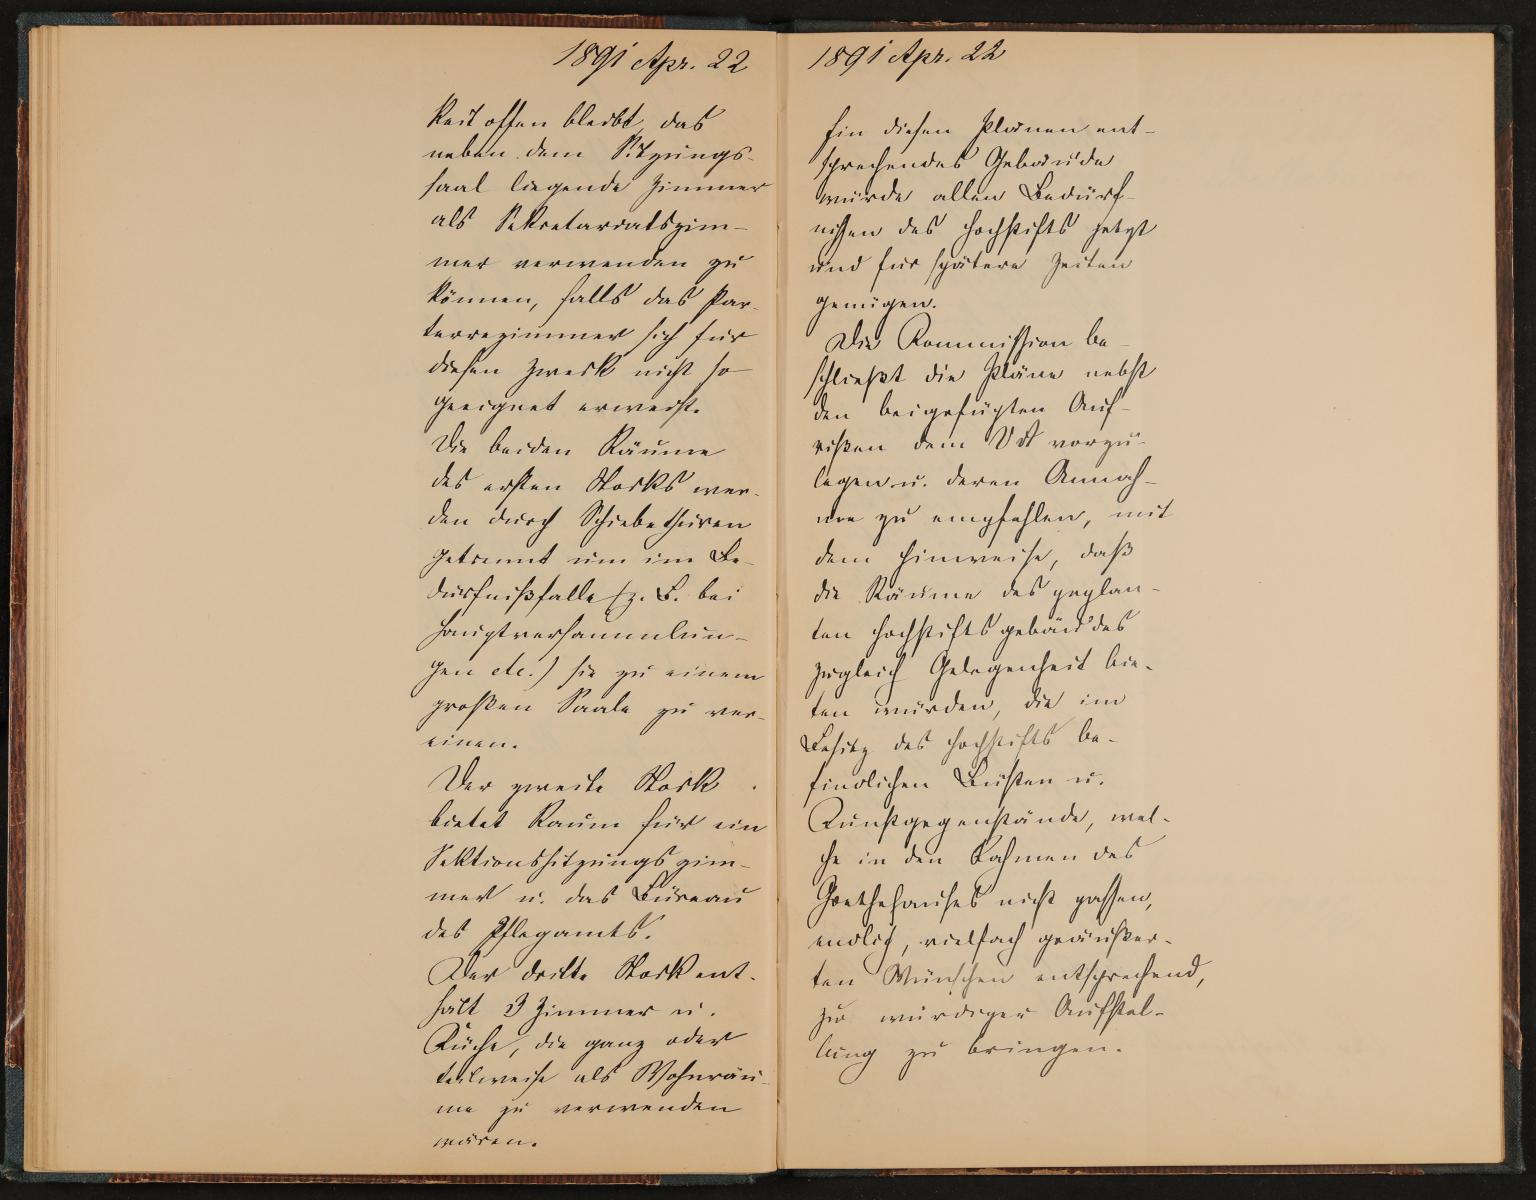 1891 Apr. 22
keit offen bleibt, das
neben dem Sitzungs-
saal liegende Zimmer
als Sekretariatszim-
mer verwenden zu
können, falls das Par-
terrezimmer sich für
diesen Zweck nicht so
geeignet erweist.
Die beiden Räume
des ersten Stocks wer-
den durch Schiebethüren
getrennt um im Be-
dürfnißfalle (z. B. bei
Hauptversammlun-
gen etc.) sie zu einem
großen Saale zu ver-
einen.
Der zweite Stock
bietet Raum für ein
Sektionssitzungszim-
mer u. das Büreau
des Pflegamts.
Der dritte Stock ent-
hält 3 Zimmer u.
Küche, die ganz oder
teilweise als Wohnräu-
me zu verwenden
wären.
1891 Apr. 22
Ein diesen Plänen ent-
sprechendes Gebäude
würde allen Bedürf-
nissen des Hochstifts jetzt
und für spätere Zeiten
genügen.
Die Kommission be-
schließt die Pläne nebst
den beigefügten Auf-
rissen dem VA vorzu-
legen u. deren Annah-
me zu empfehlen, mit
dem Hinweise, daß
die Räume des geplan-
ten Hochstiftsgebäudes
zugleich Gelegenheit bie-
ten würden, die im
Besitz des Hochstifts be-
findlichen Büsten u.
Kunstgegenstände, wel-
che in den Rahmen des
Goethehauses nicht passen,
endlich, vielfach geäußer-
ten Wünschen entsprechend,
zu würdiger Aufstel-
lung zu bringen.